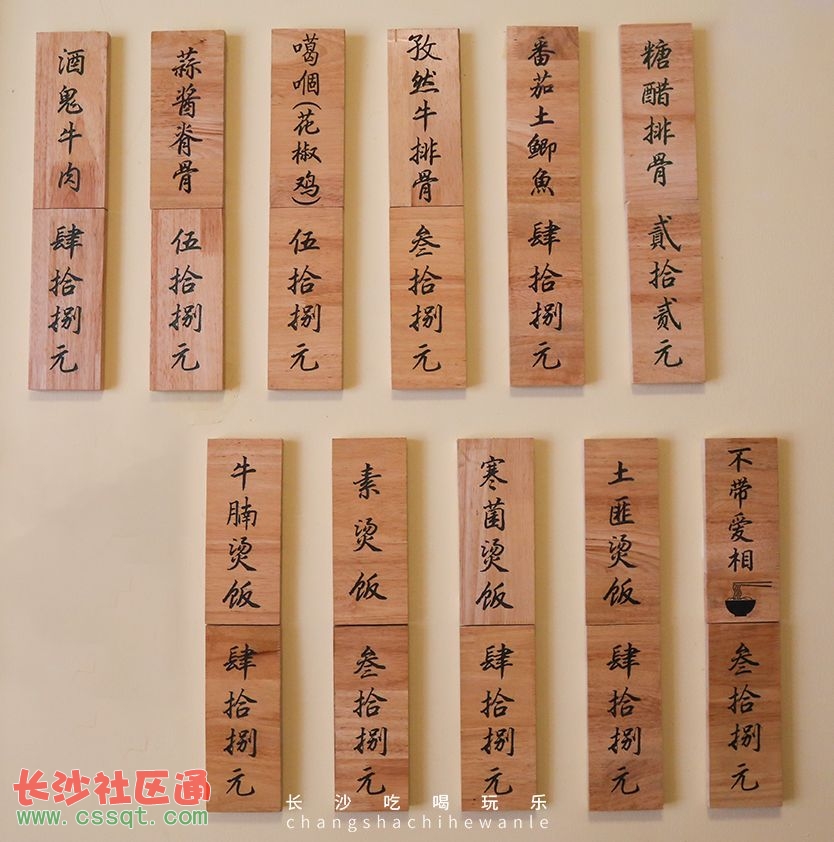 酒鬼牛肉
肆拾捌元
蒜酱脊骨
伍拾捌元
噶啯(花椒鸡)
伍拾捌元
孜然牛排骨
叁拾捌元
番茄土鲫魚
肆拾捌元
糖醋排骨
貳拾贰元
牛腩烫饭
肆拾捌元
素烫饭
叁拾捌元
寒菌烫饭
肆拾捌元
土匪烫饭
肆拾捌元
不带爱相
叁拾捌元
长沙社区通
www.cssqt.com
长沙吃喝玩乐
changshachihewanle